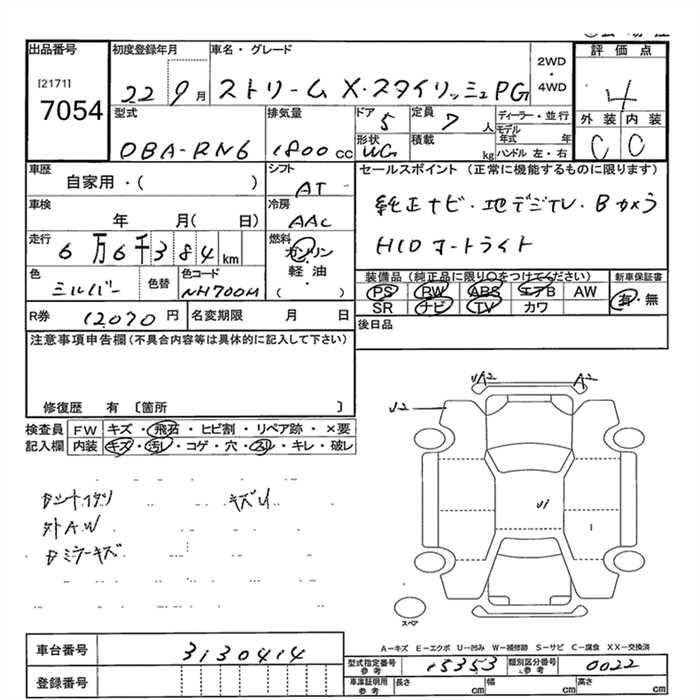 出品番号
[2171]
7054
初度登録年月
22 9月
車名・グレード
ストリーム X・スタイリッシュPG
2WD
・
4WD
評価点
4
型式
DBA-RN6
排気量
1800cc
ドア 5
形状 WG
定員 7人
積載 kg
ディーラー・並行
モデル年式 年
ハンドル 左・右
外装 内装
C C
車歴
自家用・( )
シフト
AT
車検
年 月( 日)
冷房
AAC
走行
6万6千384km
燃料
ガソリン
軽油
・
( )
色
シルバー
色替
色コード
NH700M
セールスポイント (正常に機能するものに限ります)
純正ナビ・地デジTV・Bカメラ
HIDオートライト
装備品 (純正品に限り○をつけてください)
PS RW ABS エアB AW
SR ナビ TV カワ
新車保証書
有・無
R券 12070円
名変期限 月 日
後日品
注意事項申告欄(不具合内容等は具体的に記入して下さい)
修復歴 有 〔箇所 〕
検査員記入欄
FW キズ・飛石・ヒビ割・リペア跡・×要
内装 キズ・汚レ・コゲ・穴・スレ・キレ・破レ
キズU
外AW
ミラーキズ
UA2
A2
U2
Ui
スペア
A-キズ E-エクボ U-凹み W-補修跡 S-サビ C-腐食 XX-交換済
車台番号
3130414
登録番号
型式指定番号 参考
15353
類別区分番号 参考
0022
車庫証明用 参考
長さ cm
幅 cm
高さ cm